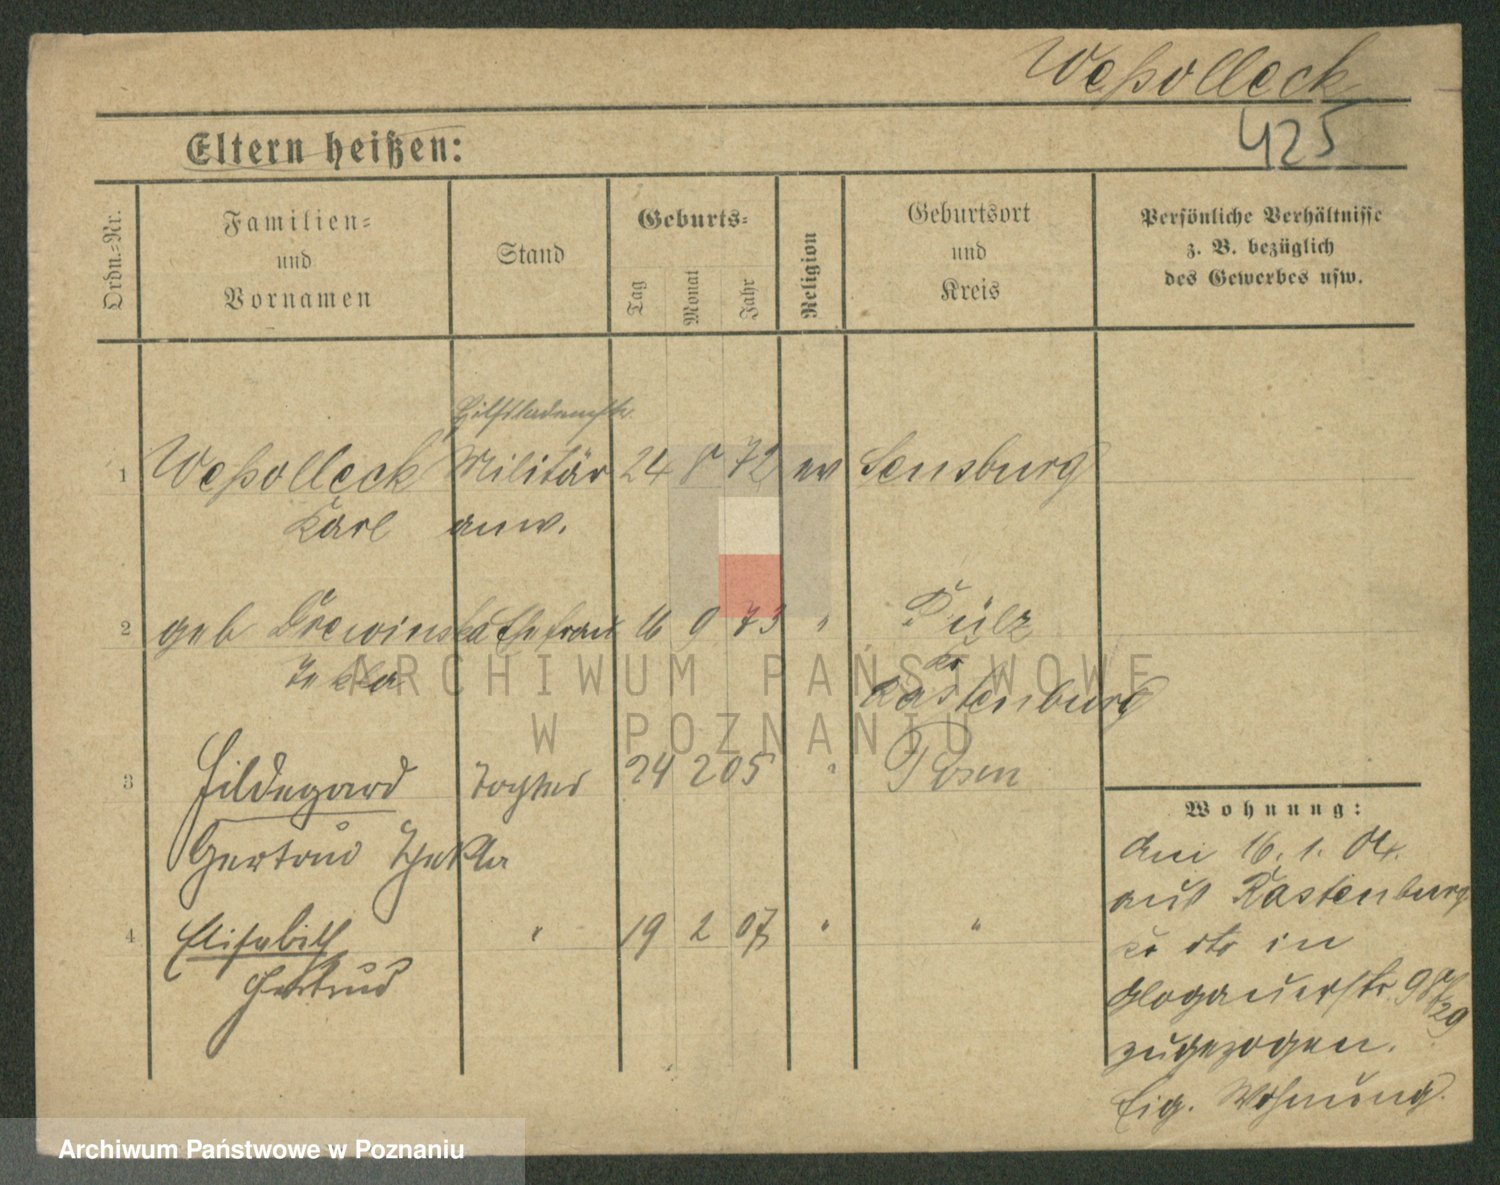 Weßolleck
425
Eltern heißen:
Ordn.-Nr.
Familien-
und
Vornamen
Stand
Geburts-
Tag
Monat
Jahr
Religion
Geburtsort
und
Kreis
Persönliche Verhältnisse
z. B. bezüglich
des Gewerbes usw.
1 Weßolleck Militär 24 8 72 ev Sensburg
Karl anw.
2 geb Drewinska Ehefrau 16 9 73 " Pülz
Tekla Kr
Rastenburg
3 Hildegard Tochter 24 2 05 " Posen
Gertrud Thekla
4 Elisabeth " 19 2 07 " "
Gertrud
Wohnung:
Am 16. 1. 04.
aus Rastenburg
Kr dto in
Glogauerstr. 98
/29
zugezogen.
Eig. Wohnung.
ARCHIWUM PAŃSTWOWE
W POZNANIU
Archiwum Państwowe w Poznaniu